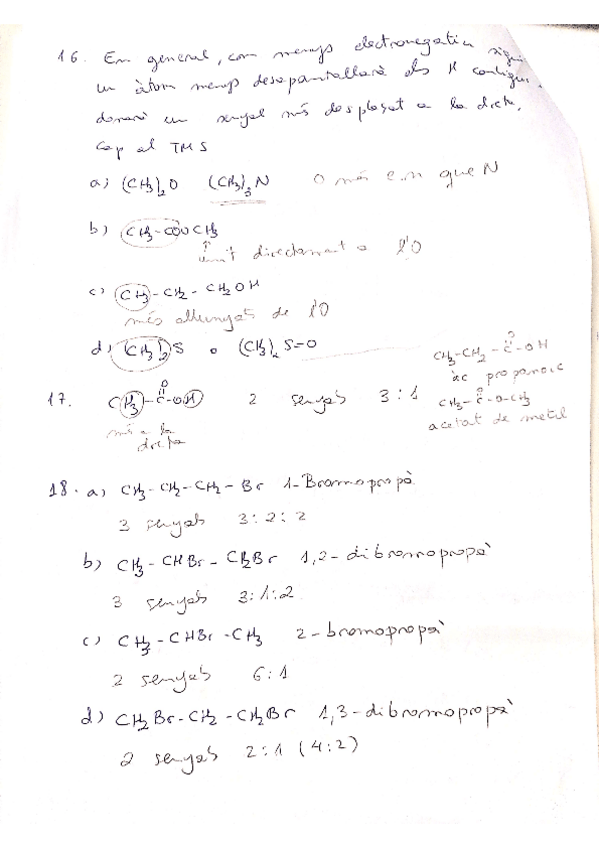 16. En general, com menys electronegatiu sigui
un àtom menys desapantallarà els H contigus.
donarà un senyal més desplaçat a la dreta,
cap al TMS
a) (CH3)2O (CH3)3N O més e.n que N
b) CH3-COOCH3
↑
unit directament a l'O
c) CH3-CH2-CH2OH
més allunyats de l'O
d) (CH3)2S o (CH3)2S=O
CH3-CH2-C-OH
O
àc propanoic
17. CH3-C-OH 2 senyals 3:1
O
més a la
dreta
CH3-C-O-CH3
O
acetat de metil
18. a) CH3-CH2-CH2-Br 1-Bromopropà
3 senyals 3:2:2
b) CH3-CHBr-CH2Br 1,2-dibromopropà
3 senyals 3:1:2
c) CH3-CHBr-CH3 2-bromopropà
2 senyals 6:1
d) CH2Br-CH2-CH2Br 1,3-dibromopropà
2 senyals 2:1 (4:2)